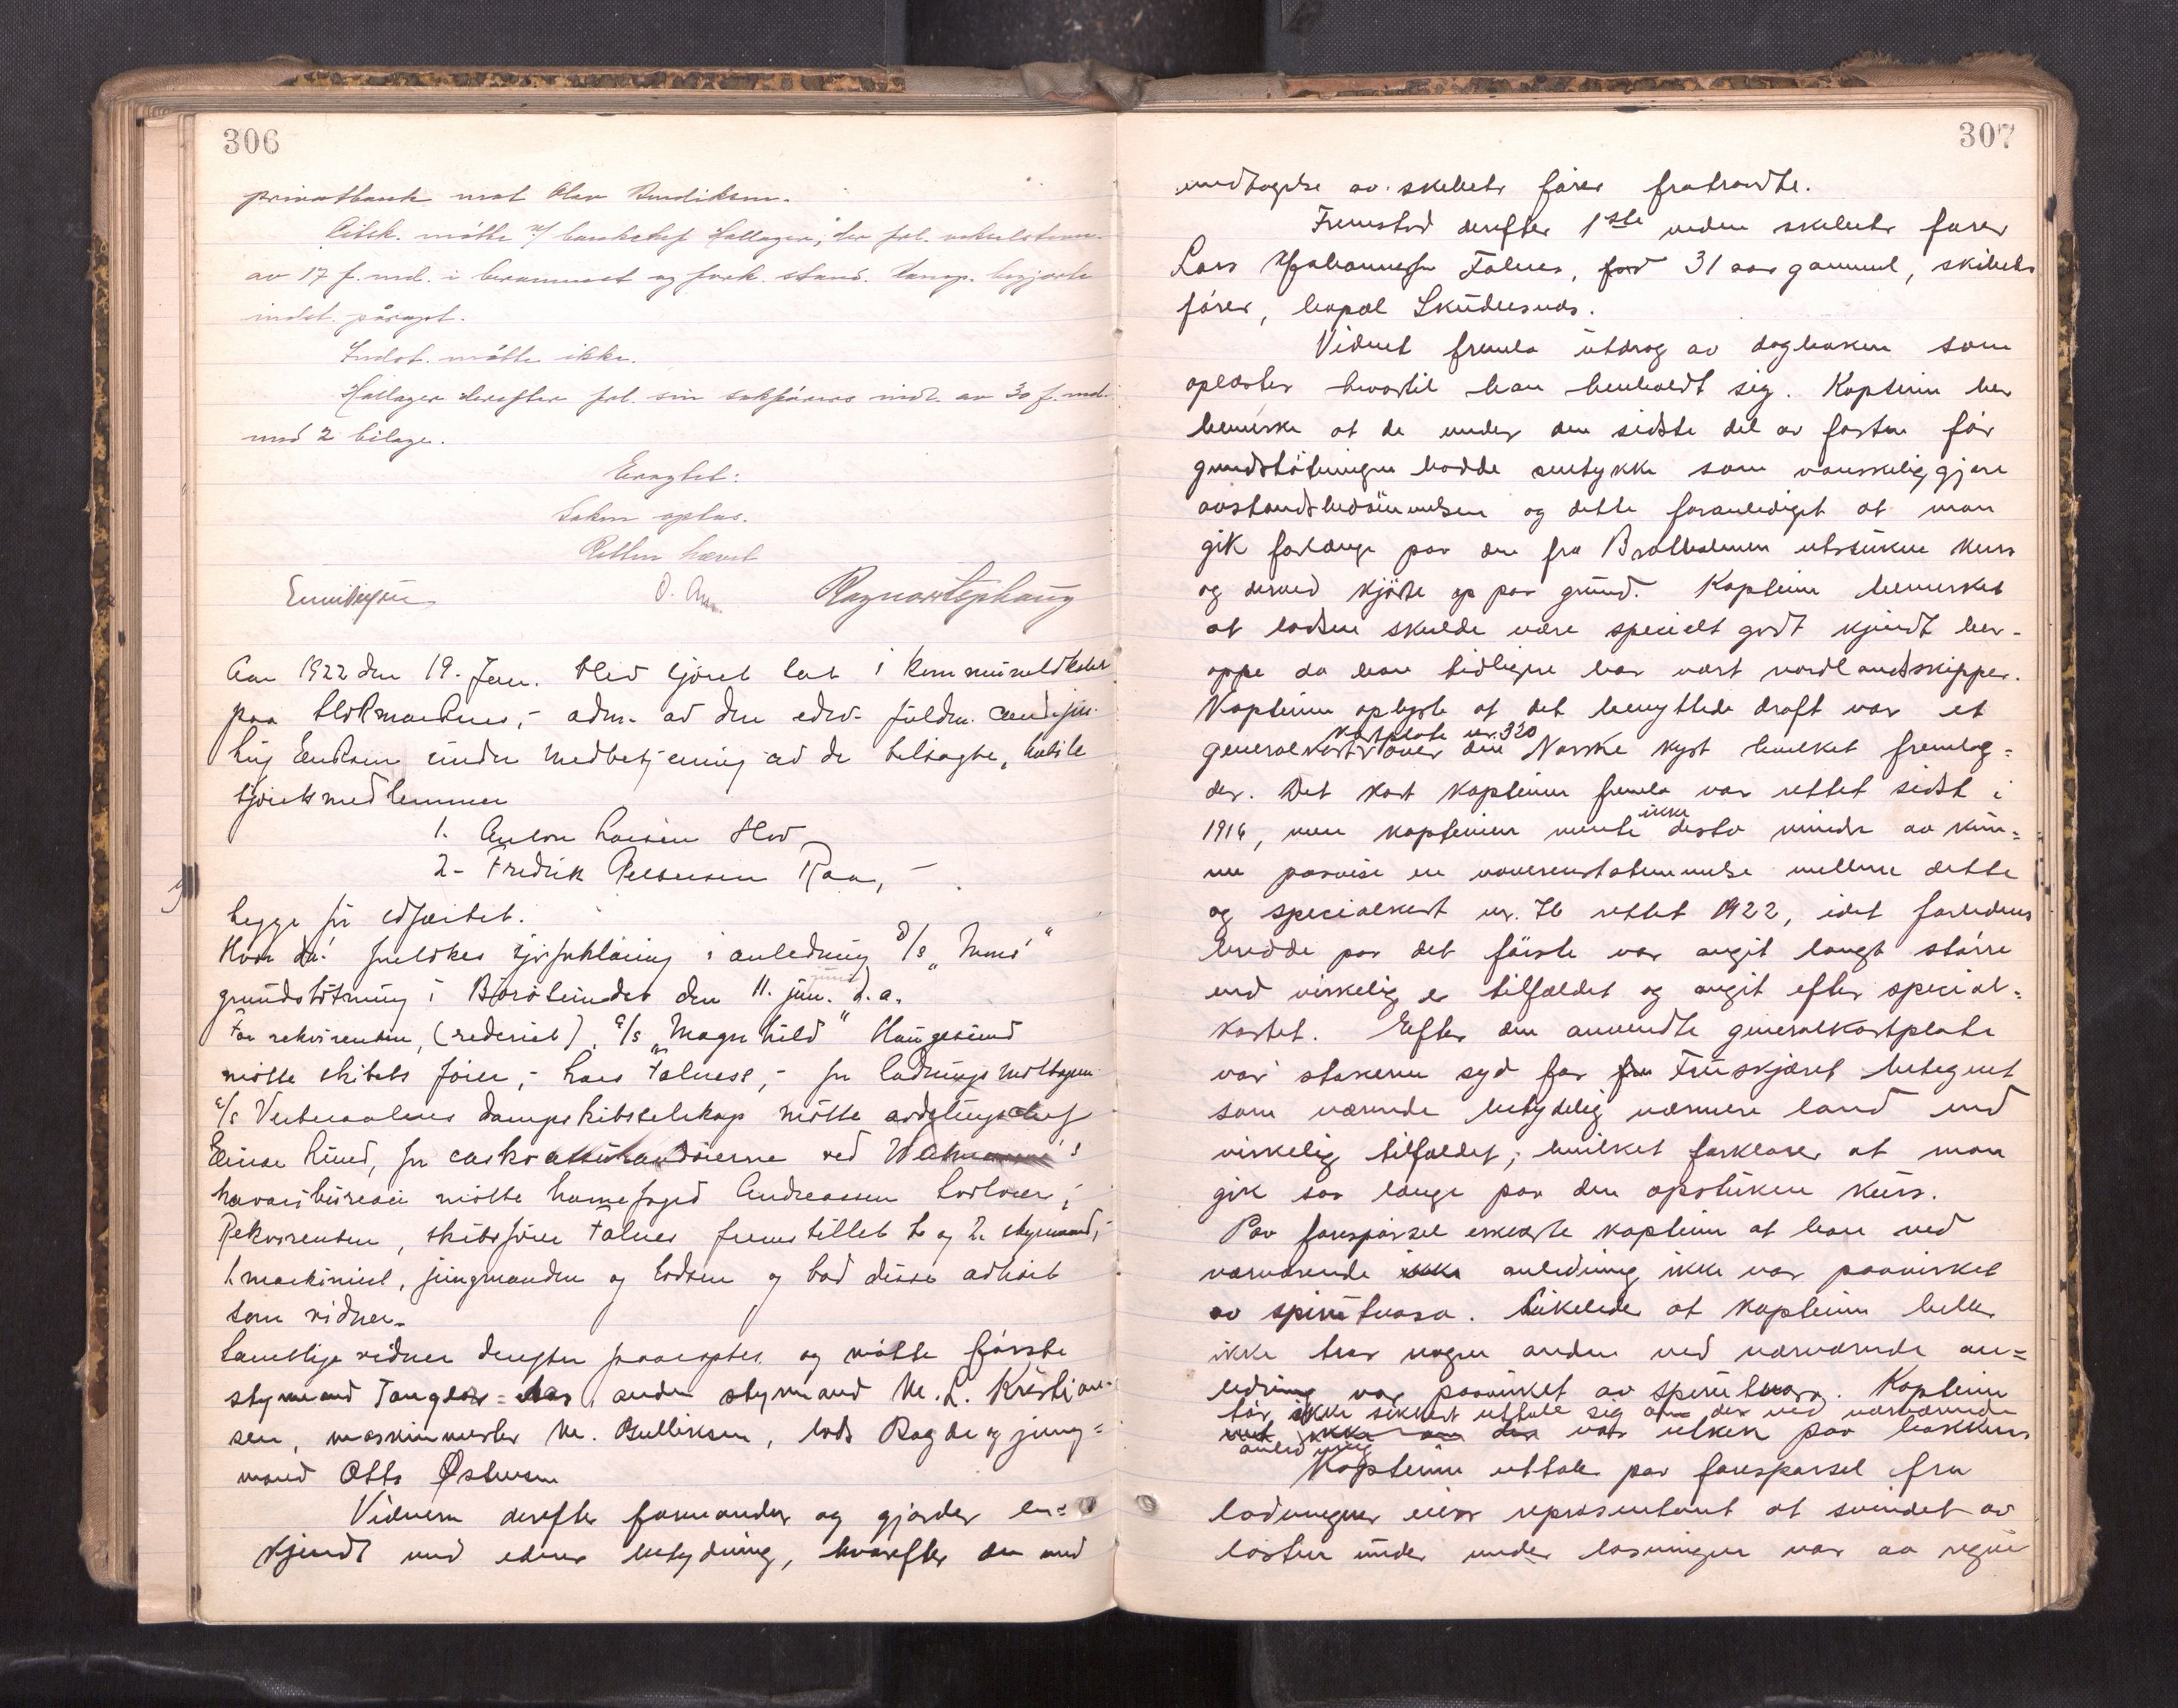 306
privatbank mot Olav Bendiksen.
Citck. møtte v/ banksjef Hallager, der frl.
av 17 f. md. i berammet og fork. stand. begjærte
indst. påropt.
Indst. møtte ikke.
Hallager derefter frl. sin sakførers indl. av 30 f. md.
med 2 bilage.
Eragtet:
Saken optas.
Retten hævet
Ragnar Ophaug
Aar 1922 den 19. Jan. blev sjøret sat i kommunelokalet
paa Blokmarknes, adm. av den edsv. fuldm. cand. jur.
Eriksen under medbetjening av de tilsagte, valgte
sjøretsmedlemmer
1. Anton Larsen Hov
2. Fredrik Raa,
begge før edfæstet.
Hvor da! foretokes sjøforklaring i anledning D/S "
grundstøtning i Børøsundet den 11. jan. d. a.
juni
For rekvirenten, (rederiet), A/S "Magnhild" Haugesund
møtte skibets fører, Lars Falnes, for ladningsmottageren
A/S Vesteraalens Dampskibsselskap møtte avdelingschef
Einar Lund, for caskoassurandørerne ved
havaribureau møtte havnefoged Andreassen
Rekvirenten, skibsfører Falnes fremstillet 1. og 2. styrmand,
1 maskinist, jungmanden og lodsen og bad disse avhørt
som vidner.
Samtlige vidner derefter paaroptes og møtte første
styrmand anden styrmand M. L. Kristian-
sen, maskinmester M. Gulliksen, lods Bagde og jung=
mand Otto Østensen
Vidnerne derefter formandes og gjordes be=
kjendt med edens betydning, hvorefter de med
307
undtagelse av skibets fører fratraadte.
Fremstod derefter 1ste vidne skibets fører
Lars Johannessen Falnes, født 31 aar gammel, skibets
fører, bopæl Skudesnes.
Vidnet fremla utdrag av dagboken som
oplæstes hvortil han henholdt sig. Kapteinen ber
bemerke at de under den sidste del av farten før
grundstøtningen hadde snetykke som vanskeliggjør
avstandsbedømmelsen og dette foranlediget at man
gik forlænge paa den fra Bratholmen utstukne kurs
og derved kjørte op paa grund. Kapteinen bemerket
at lodsen skulde være specielt godt kjendt her-
oppe da han tidligere har vært nordlandsskipper.
Kapteinen oplyste at det benyttede draft var et
kartplate nr. 320
generalkart over den Norske kyst hvilket fremlag=
des. Det kart kapteinen fremla var rettet sidst i
ikke
1916, men kapteinen mente desto mindre av kun=
ne paavise en uoverenstatemmelse mellem dette
og specialkart nr. 76 rettet 1922, idet farledens
bredde paa det første var angit langt større
end virkelig er tilfældet og angit efter special=
kartet. Efter den anvendte generalkartplate
var stakerne syd for fru Fruskjæret betegnet
som værende betydelig nærmere land end
virkelig tilfældet; hvilket forklarer at man
gik saa længe paa den opstukne kurs.
Paa forespørsel erklærte kapteinen at han ved
nærværende ikke anledning ikke var paavirket
av spirituosa. Likeledes at kapteinen heller
ikke tror nogen anden ved nærværende an=
ledning var paavirket av spirituosa. Kapteinen
tør ikke sikkert uttale sig om der ved nærværende
anledning
ikke om der var utkik paa bakken
Kapteinen uttaler paa forespørsel fra
ladningens eiers repræsentant at svindet av
lasten under under losningen var aa regne